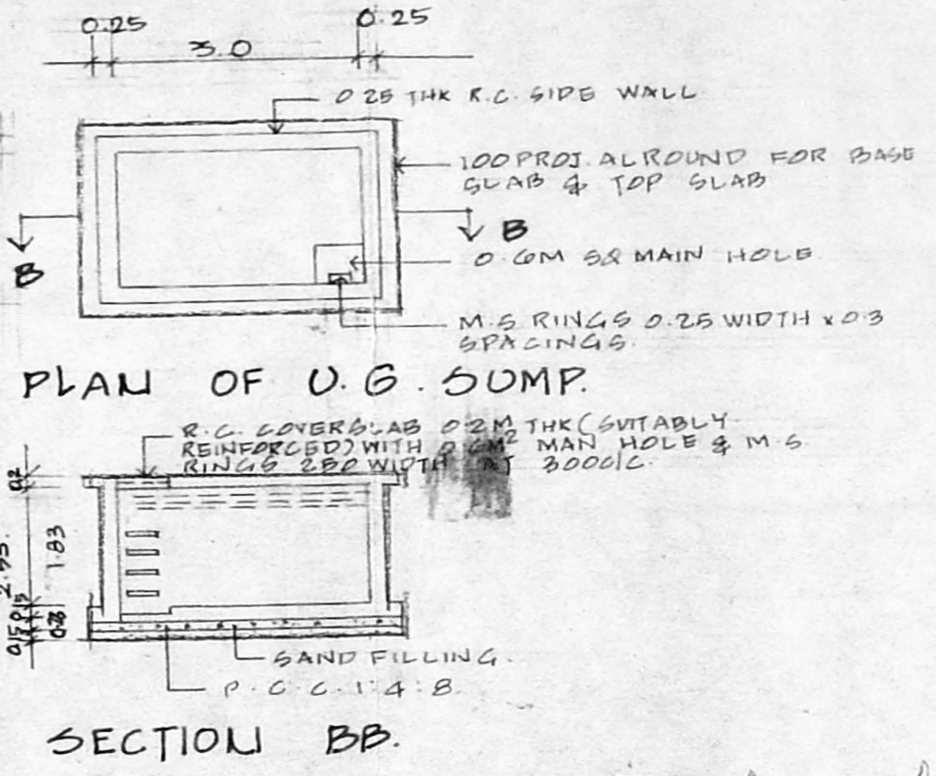 0.25
0.25
3.0
0.25 THK R.C. SIDE WALL
100 PROJ. ALROUND FOR BASE
SLAB & TOP SLAB
B
B
0.6M SQ MAIN HOLE.
M.S RINGS 0.25 WIDTH x 0.3
SPACINGS.
PLAN OF U.G. SUMP.
R.C. COVERSLAB 0.2M THK (SUITABLY
REINFORCED) WITH M² MAN HOLE & M.S
RINGS 250 WIDTH AT 300C/C.
0.2
1.83
SAND FILLING.
P.C.C. 1:4:8.
SECTION BB.